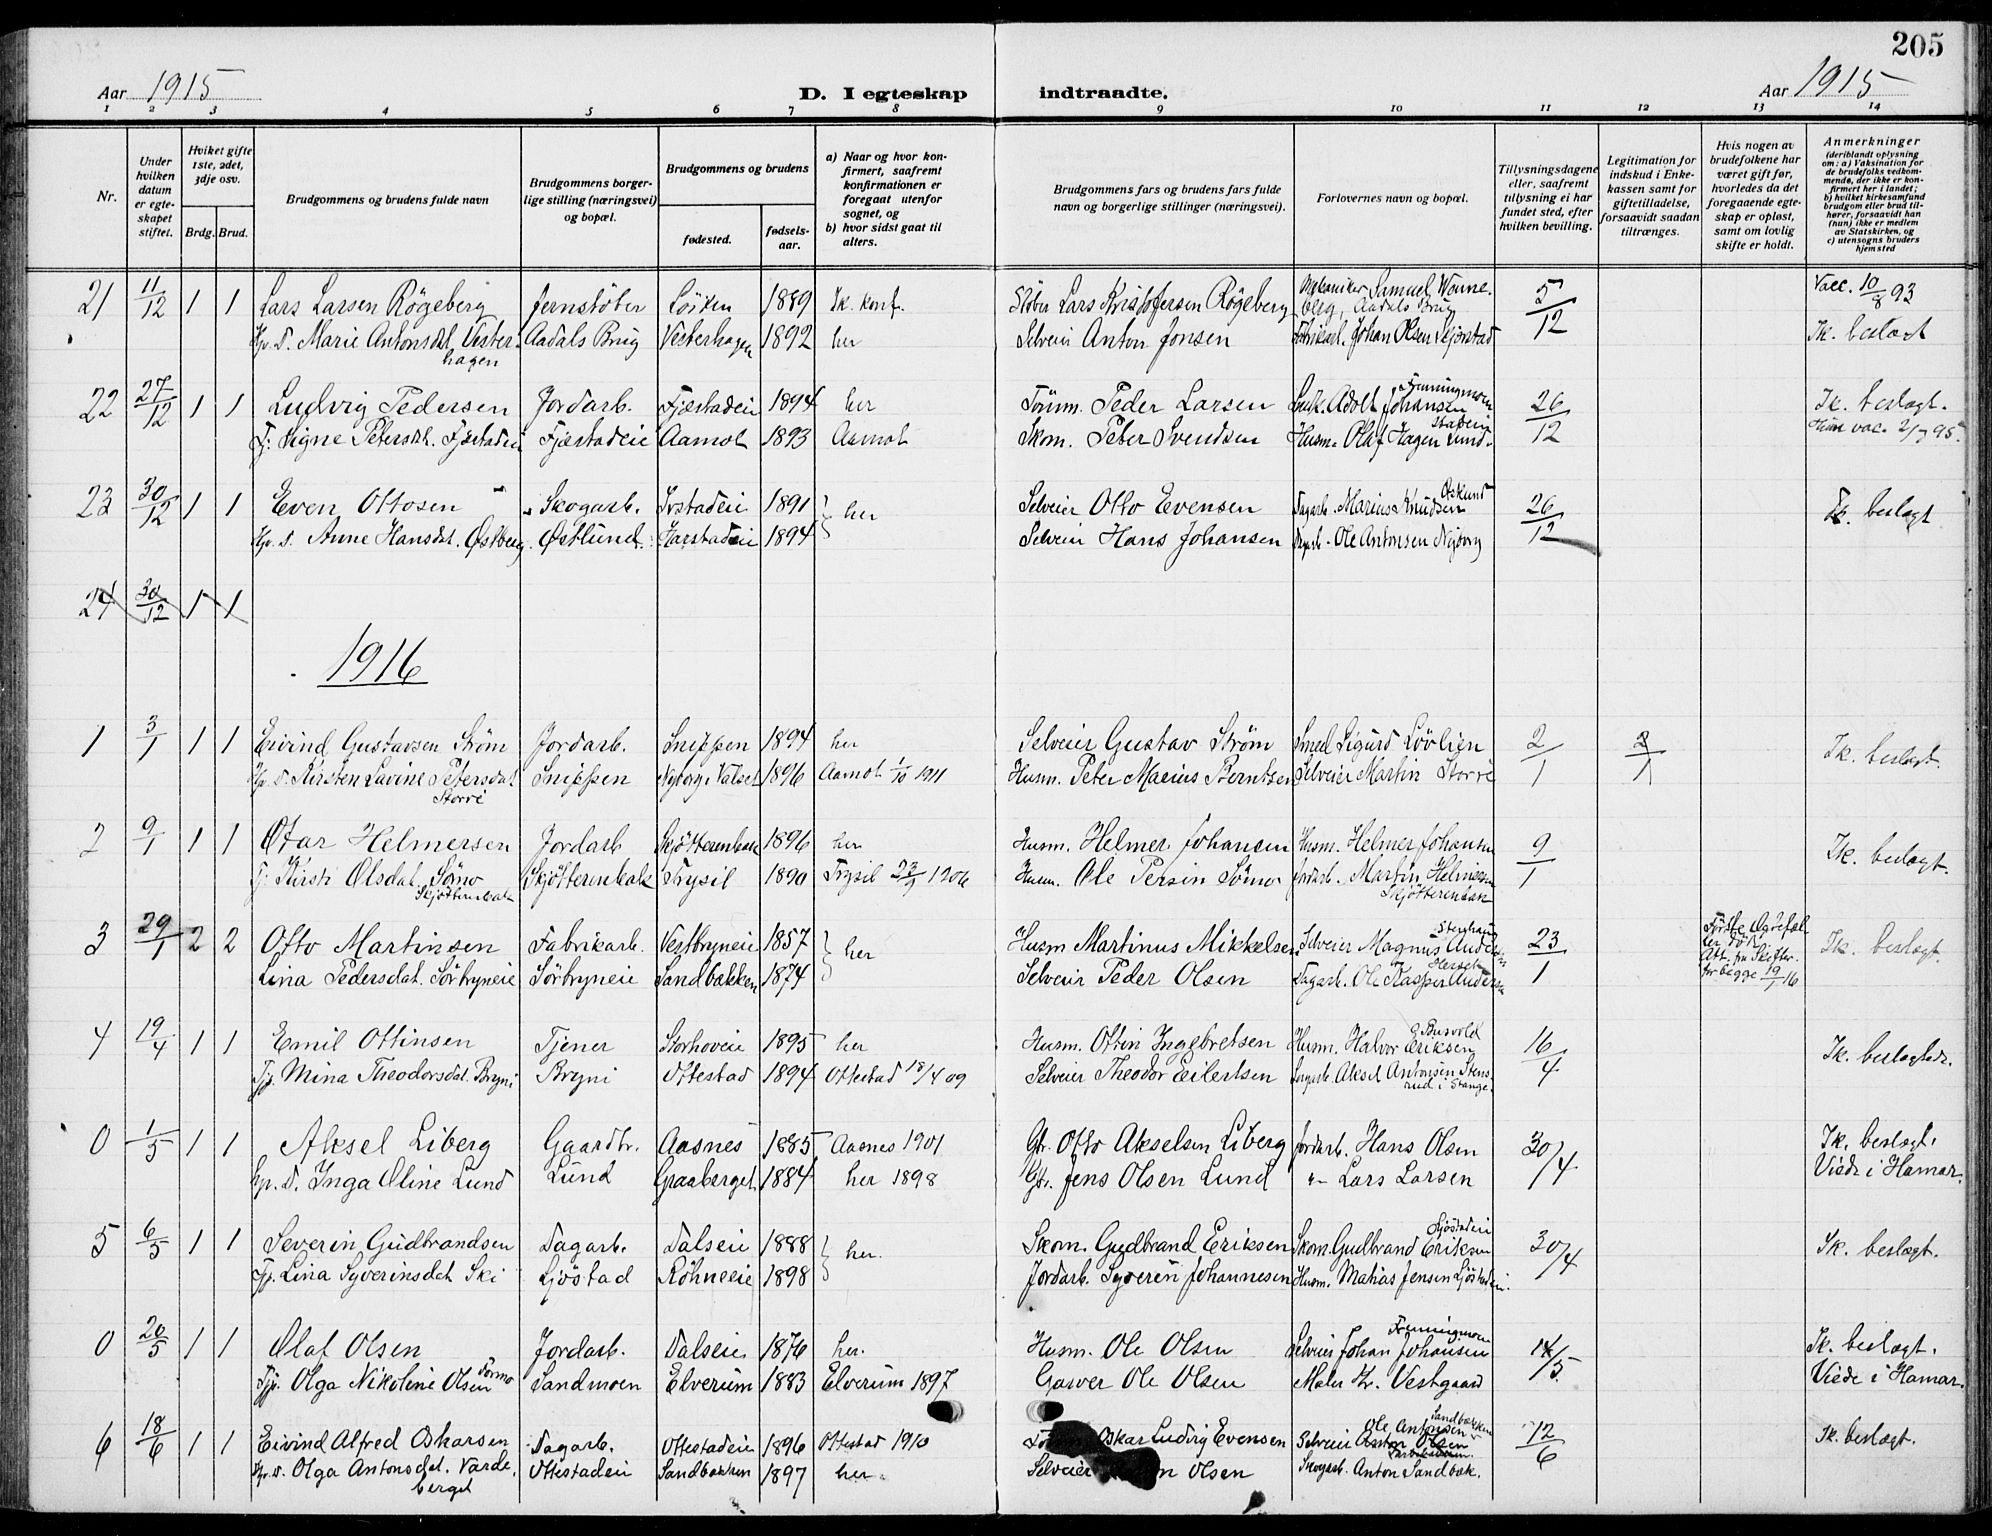 205
Aar 1915
D. I egteskap indtraadte.
Aar 1915
1 2 3 4 5 6 7 8 9 10 11 12 13 14
Nr.
Under hvilken datum er egteskapet stiftet.
Hviket gifte 1ste, 2det, 3dje osv.
Brdg. Brud.
Brudgommens og brudens fulde navn
Brudgommens borgerlige stilling (næringsvei) og bopæl.
Brudgommens og brudens
fødested.
fødselsaar.
a) Naar og hvor konfirmert, saafremt konfirmationen er foregaat utenfor sognet, og
b) hvor sidst gaat til alters.
Brudgommens fars og brudens fars fulde navn og borgerlige stillinger (næringsvei).
Forlovernes navn og bopæl.
Tillysningsdagene eller, saafremt tillysning ei har fundet sted, efter hvilken bevilling.
Legitimation for indskud i Enkekassen samt for giftetilladelse, forsaavidt saadan tiltrænges.
Hvis nogen av brudefolkene har været gift før, hvorledes da det foregaaende egteskap er opløst, samt om lovlig skifte er holdt.
Anmerkninger (deriblandt oplysning om: a) Vaksination for de brudefolks vedkommende, der ikke er konfirmert her i landet; b) hvilket kirkesamfund brudgom eller brud tilhører, forsaavidt han (hun) ikke er medlem av Statskirken, og c) utensogns bruders hjemsted
21 11/12 1 1 Lars Larsen Røgeberg Jernstøber Löiten 1889 Ik. konf. Støber Lars Kristofersen Røgeberg Mekaniker Samuel Wenneberg, Aadals Brug 5/12 Vacc. 10/8 93
Hp. D. Marie Antonsdt. Vesterhagen Aadals Brug Vesterhagen 1892 her Selveier Anton Jonsen Fabrikarb. Johan Olsen Skjørstad Ik. beslægt
22 27/12 1 1 Ludvig Pedersen Jordarb. Fjæstadeie 1894 her Tömm. Peder Larsen Adolf Johansen 26/12 Ik. beslægt.
Tj. Signe Petersdt. Fjæstadeie Fjæstadeie Aamot 1893 Aamot Skom. Peter Svendsen Husm. Olaf Hagen Hun vac. 95.
23 30/12 1 1 Even Ottosen Skogarb. 1891 her Selveier Otto Evensen Dagarb. Marius Knudsen Østlund 26/12 Ik. beslægt
Hp. D. Anne Hansdat. Østberg Østlund Harstadeie 1894 Selveier Hans Johansen Dagarb. Ole Antonsen Nyborg
24 30/12 1 1
1916
1 3/1 1 1 Eivind Gustavsen Strøm Jordarb. Snippen 1894 her Selveier Gustav Strøm Smed Sigurd Lövlien 2/1 2/1 Ik. beslægt.
Hp. D. Kirsten Lavine Petersdat. Storvi Snippen Nyborg i Valset 1896 Aamot 1/10 1911 Husm. Peter Marius Berntsen Selveier Martin Storvi
2 9/1 1 1 Otar Helmersen Jordarb Skjötterenbak 1896 her Husm. Helmer Johansen Husm. Helmer Johansen 9/1 Ik. beslægt.
Tj. Kirsti Olsdat. Sömo Skjötterenbak Skjötterenbak Trysil 1890 Trysil 23/9 1906 Husm. Ole Persen Sömo Jordarb. Martin Helmersen Skjötterenbak
3 29/1 2 2 Otto Martinsen Fabrikarb. Vestbryneie 1857 her Husm. Martinus Mikkelsen Selveier Magnus Andersen 23/1 Første Egtefæller död. Att. fra Skifter. for begge 19/1 16 Ik. beslægt.
Lina Pedersdat. Sörbryneie Sörbryneie Sandbakken 1874 Selveier Peder Olsen Dagarb. Ole Kasper Andersen
4 19/4 1 1 Emil Ottinsen Tjener Storhoveie 1895 her Husm. Ottin Ingebretsen Husm. Halvor Eriksen 16/4 Ik. beslægtede.
Tj. Mina Theodorsdat. Bryni Bryni Ottestad 1894 Ottestad 18/4 09 Selveier Theodor Eilertsen Aksel Antonsen Stensrud i Stange.
0 1/5 1 1 Aksel Liberg Gaardbr. Aasnes 1885 Aasnes 1901 Gbr. Otto Akselsen Liberg Jordarb. Hans Olsen 30/4 Ik. beslægt.
Hp. D. Inga Oline Lund Lund Graaberget 1884 her 1898 Gbr. Jens Olsen Lund "- Lars Larsen Viede i Hamar.
5 6/5 1 1 Severin Gudbrandsen Dagarb. Dalseie 1888 her. Skom. Gudbrand Eriksen Skom. Gudbrand Eriksen Sjöstadeie 30/4 Ik. beslægt.
Tj. Lina Syverinsdat. Ski Sjöstad Röhneeie 1898 Jordarb. Syverin Johannesen Husm. Matias Jensen Sjöstadeie.
0 20/5 1 1 Olaf Olsen Jordarb. Dalseie 1876 her. Husm. Ole Olsen Selveier Johan Johansen 14/5. Ik. beslægt.
Tj. Olga Nikoline Olsen Sandmoen Elverum 1883 Elverum 1897 Garver Ole Olsen Maler Kr. Vestgaard Viede i Hamar.
6 18/6 1 1 Eivind Alfred Oskarsen Dagarb. Ottestadeie 1896 Ottestad 1910 Oskar Ludvig Evensen Selveier Ole Antonsen Sandbakken 12/6 Ik. beslægt.
Hp. D. Olga Antonsdat. Vardeberget Ottestadeie Sandbakken 1897 her. Selveier Olsen Skogarb. Anton Sandbæk.